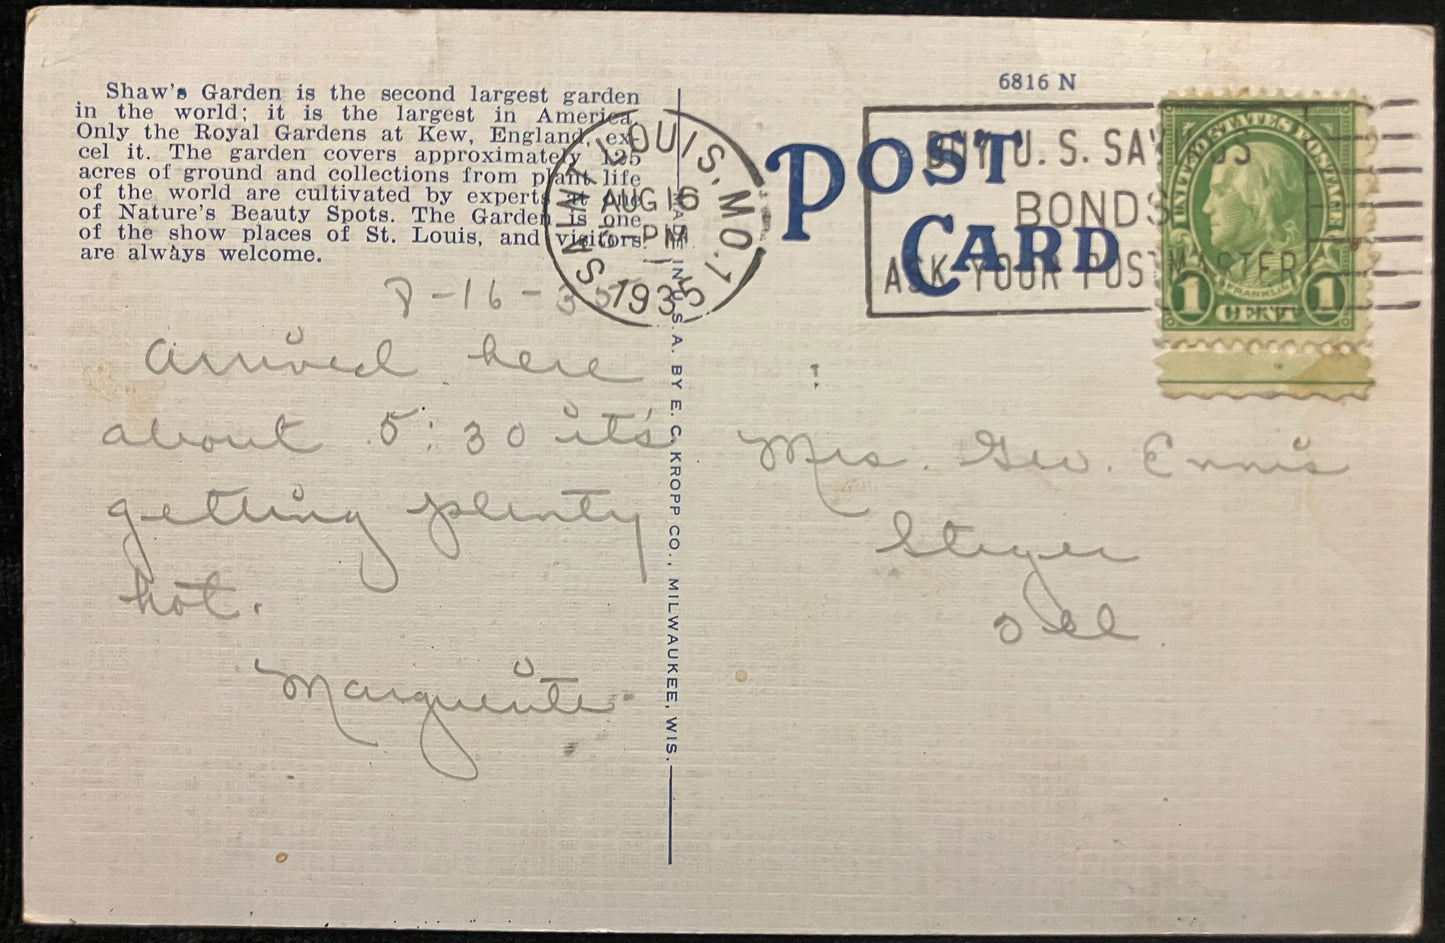 Shaw's Garden is the second largest garden
in the world; it is the largest in America.
Only the Royal Gardens at Kew, England, ex-
cel it. The garden covers approximately 125
acres of ground and collections from plant life
of the world are cultivated by experts at one
of Nature's Beauty Spots. The Garden is one
of the show places of St. Louis, and visitors
are always welcome.
8-16-35
arrived here
about 5:30 it's
getting plenty
hot.
Marguerite
MADE IN U.S.A. BY E. C. KROPP CO., MILWAUKEE, WIS.
6816 N
POST
CARD
LOUIS, MO. 1
AUG 16
PM
1935
BUY U.S. SAVINGS
BONDS
ASK YOUR POSTMASTER
UNITED STATES POSTAGE
FRANKLIN
1 CENT 1
Mrs. Geo. Ennis
Ill